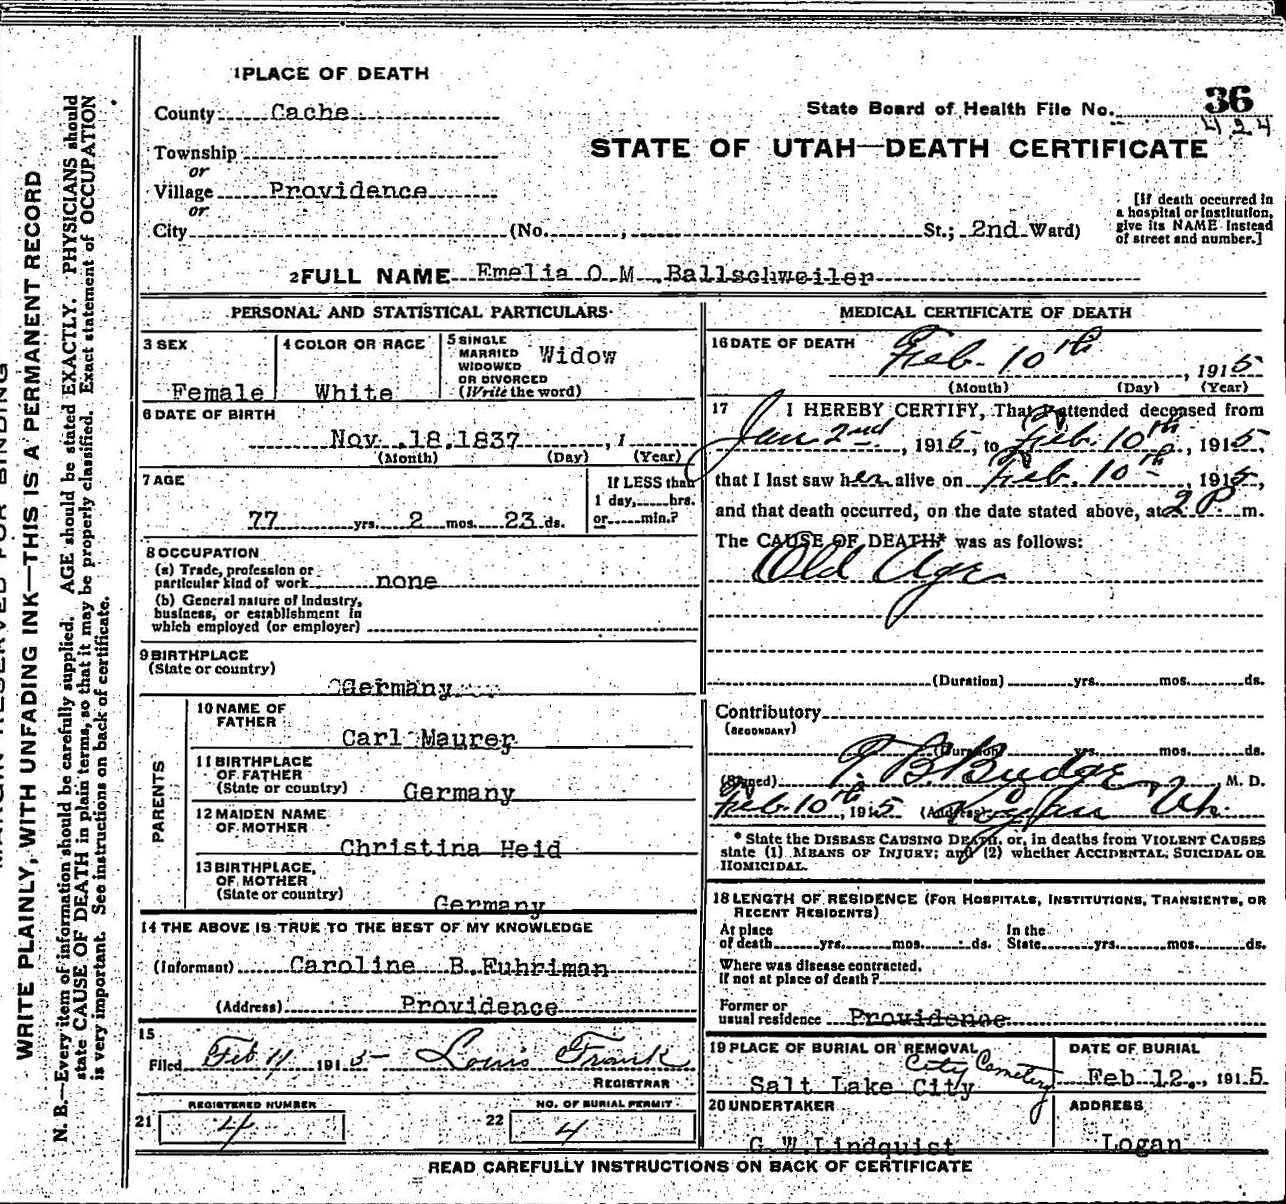 1 PLACE OF DEATH
County Cache
State Board of Health File No. 36
424
Township
or
Village Providence
or
City (No. , St.; 2nd Ward)
STATE OF UTAH—DEATH CERTIFICATE
[If death occurred in
a hospital or institution,
give its NAME instead
of street and number.]
2 FULL NAME Emelia O M Ballschweiler
PERSONAL AND STATISTICAL PARTICULARS
3 SEX
Female
4 COLOR OR RACE
White
5 SINGLE
MARRIED
WIDOWED
OR DIVORCED
(Write the word)
Widow
6 DATE OF BIRTH
Nov. 18, 1837 , 1
(Month) (Day) (Year)
7 AGE
77 yrs. 2 mos. 23 ds.
If LESS than
1 day, hrs.
or min.?
8 OCCUPATION
(a) Trade, profession or
particular kind of work none
(b) General nature of Industry,
business, or establishment in
which employed (or employer)
9 BIRTHPLACE
(State or country)
Germany
PARENTS
10 NAME OF
FATHER
Carl Maurer
11 BIRTHPLACE
OF FATHER
(State or country)
Germany
12 MAIDEN NAME
OF MOTHER
Christina Heid
13 BIRTHPLACE,
OF MOTHER
(State or country)
Germany
14 THE ABOVE IS TRUE TO THE BEST OF MY KNOWLEDGE
(Informant) Caroline B. Fuhriman
(Address) Providence
15
Filed Feb 11 1915 Louis Frank
REGISTRAR
REGISTERED NUMBER
21 4
NO. OF BURIAL PERMIT
22 4
MEDICAL CERTIFICATE OF DEATH
16 DATE OF DEATH
Feb. 10th , 1915
(Month) (Day) (Year)
17 I HEREBY CERTIFY, That I attended deceased from
Jan 2nd , 1915, to Feb. 10th , 1915,
that I last saw her alive on Feb. 10th , 1915,
and that death occurred, on the date stated above, at 2 P m.
The CAUSE OF DEATH* was as follows:
Old Age
(Duration) yrs. mos. ds.
Contributory
(SECONDARY)
(Duration) yrs. mos. ds.
(Signed) T. B. Budge, M. D.
Feb. 10th, 1915 (Address) Logan Ut.
* State the DISEASE CAUSING DEATH, or, in deaths from VIOLENT CAUSES
state (1) MEANS OF INJURY; and (2) whether ACCIDENTAL, SUICIDAL OR
HOMICIDAL.
18 LENGTH OF RESIDENCE (FOR HOSPITALS, INSTITUTIONS, TRANSIENTS, OR
RECENT RESIDENTS)
At place In the
of death yrs. mos. ds. State yrs. mos. ds.
Where was disease contracted,
if not at place of death?
Former or
usual residence Providence
19 PLACE OF BURIAL OR REMOVAL
City Cemetery
Salt Lake City
DATE OF BURIAL
Feb 12., 1915.
20 UNDERTAKER
G. W. Lindquist
ADDRESS
Logan
READ CAREFULLY INSTRUCTIONS ON BACK OF CERTIFICATE
WRITE PLAINLY, WITH UNFADING INK—THIS IS A PERMANENT RECORD
N. B.—Every item of information should be carefully supplied. AGE should be stated EXACTLY. PHYSICIANS should
state CAUSE OF DEATH in plain terms, so that it may be properly classified. Exact statement of OCCUPATION
is very important. See instructions on back of certificate.